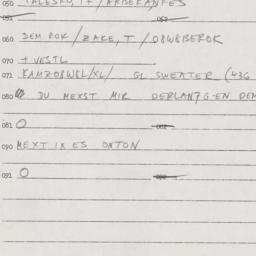 050 TALESKO, T / ARBEKANFES
060 DEM ROK / ZAKE, T / OBWBEROK
070 + VESTL
072 KAMZOBWBL/XL/ GL SWEATER (436
080 DU MEXST MIR DERLANZG-EN DEM
081 O
090 MEXT IX ES ONTON
091 O